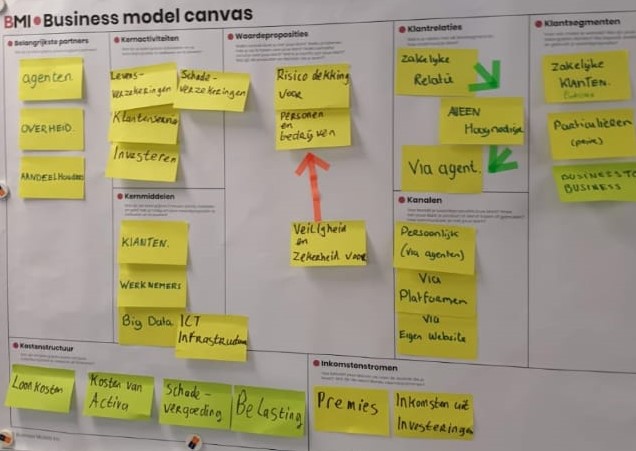 BMI Business model canvas
Belangrijkste partners
agenten
OVERHEID.
AANDEELHouders
Kernactiviteiten
Levens-
verzekeringen
Schade-
verzekeringen
Klantenservice
Investeren
Kernmiddelen
KLANTEN.
WERKNEMERS
Big Data
ICT
Infrastructuur
Waardeproposities
Risico dekking
voor
PERSONEN
en
bedrijven
Veiligheid
en
Zekerheid voor
Klantrelaties
Zakelijke
Relatie
ALLEEN
Via agent.
Kanalen
Persoonlijk
(via agenten)
Via
Platformen
via
Eigen Website
Klantsegmenten
Zakelijke
KLANTEN.
Particulieren
BUSINESS TO
BUSINESS
Kostenstructuur
Loonkosten
Kosten van
Activa
Schade-
vergoeding
Belasting
Inkomstenstromen
Premies
Inkomsten uit
Investeringen